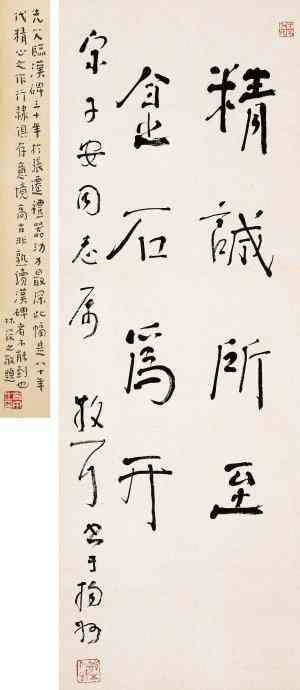 精誠所至
金石為开
宗子安同志属 牧可书于扬州
先父臨漢碑三十年於張遷禮器功力最深此幅是八十年
代精心之作行隸俱存意境高古非熟读漢碑者不能到也
林筱之敬題